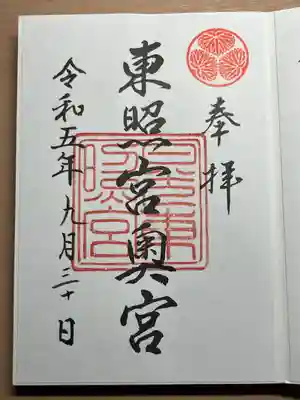 奉拝
東照宮奥宮
令和五年九月三十日